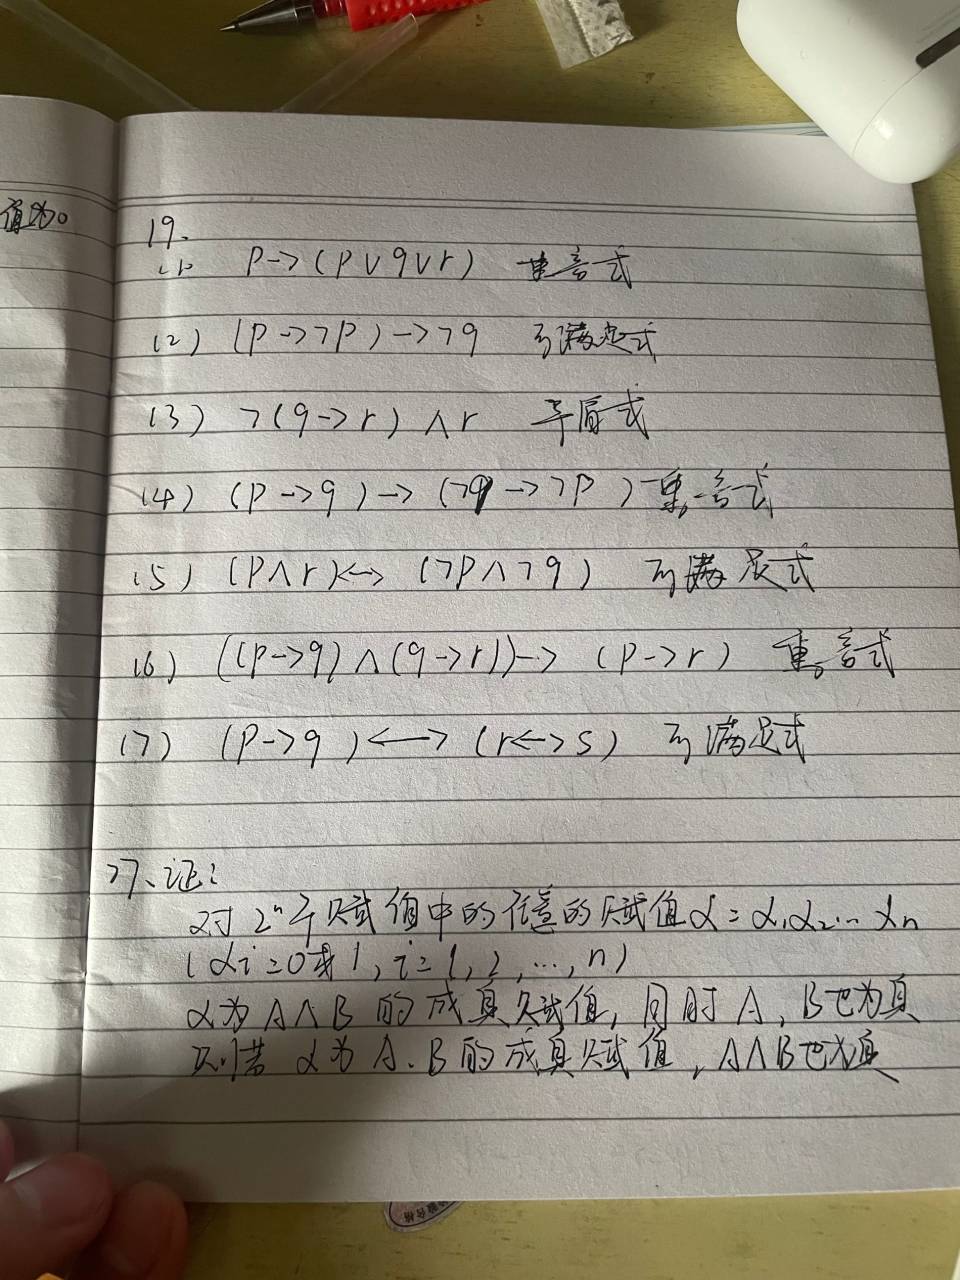 值为0
19.
(1) p->(p∨q∨r) 重言式
(2) (p->¬p)->¬q 可满足式
(3) ¬(q->r)∧r 矛盾式
(4) (p->q)->(¬q->¬p) 重言式
(5) (p∧r)<->(¬p∧¬q) 可满足式
(6) ((p->q)∧(q->r))->(p->r) 重言式
(7) (p->q)<->(r<->s) 可满足式
27、证:
对2ⁿ个赋值中的任意的赋值α=α₁α₂…αn
(αi=0或1,i=1,2,…,n)
α为A∧B的成真赋值,同时A、B也为真
则若α为A、B的成真赋值,A∧B也为真